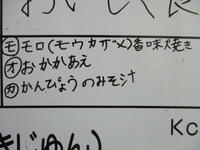 おいしく食
㋲モロ(モウカザメ)香味焼き
㋔おかかあえ
㋕かんぴょうのみそ汁
Kc
きじゅん